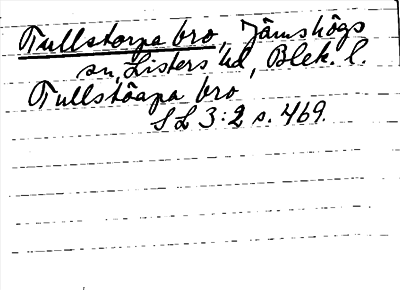 Tullstorpa bro, Jämshögs
sn, Listers hd, Blek. l.
Tullståapa bro
SL 3:2 s. 469.